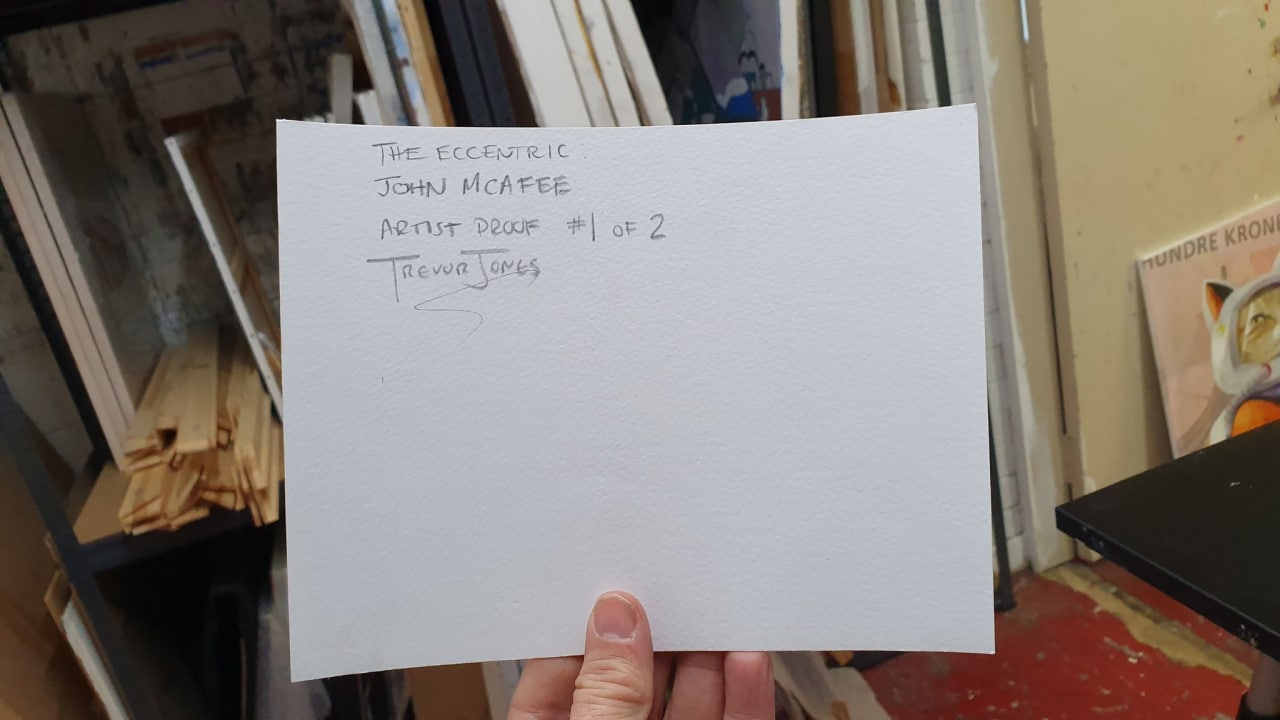 THE ECCENTRIC:
JOHN MCAFEE
ARTIST PROOF #1 OF 2
TREVOR JONES
HUNDRE KRON